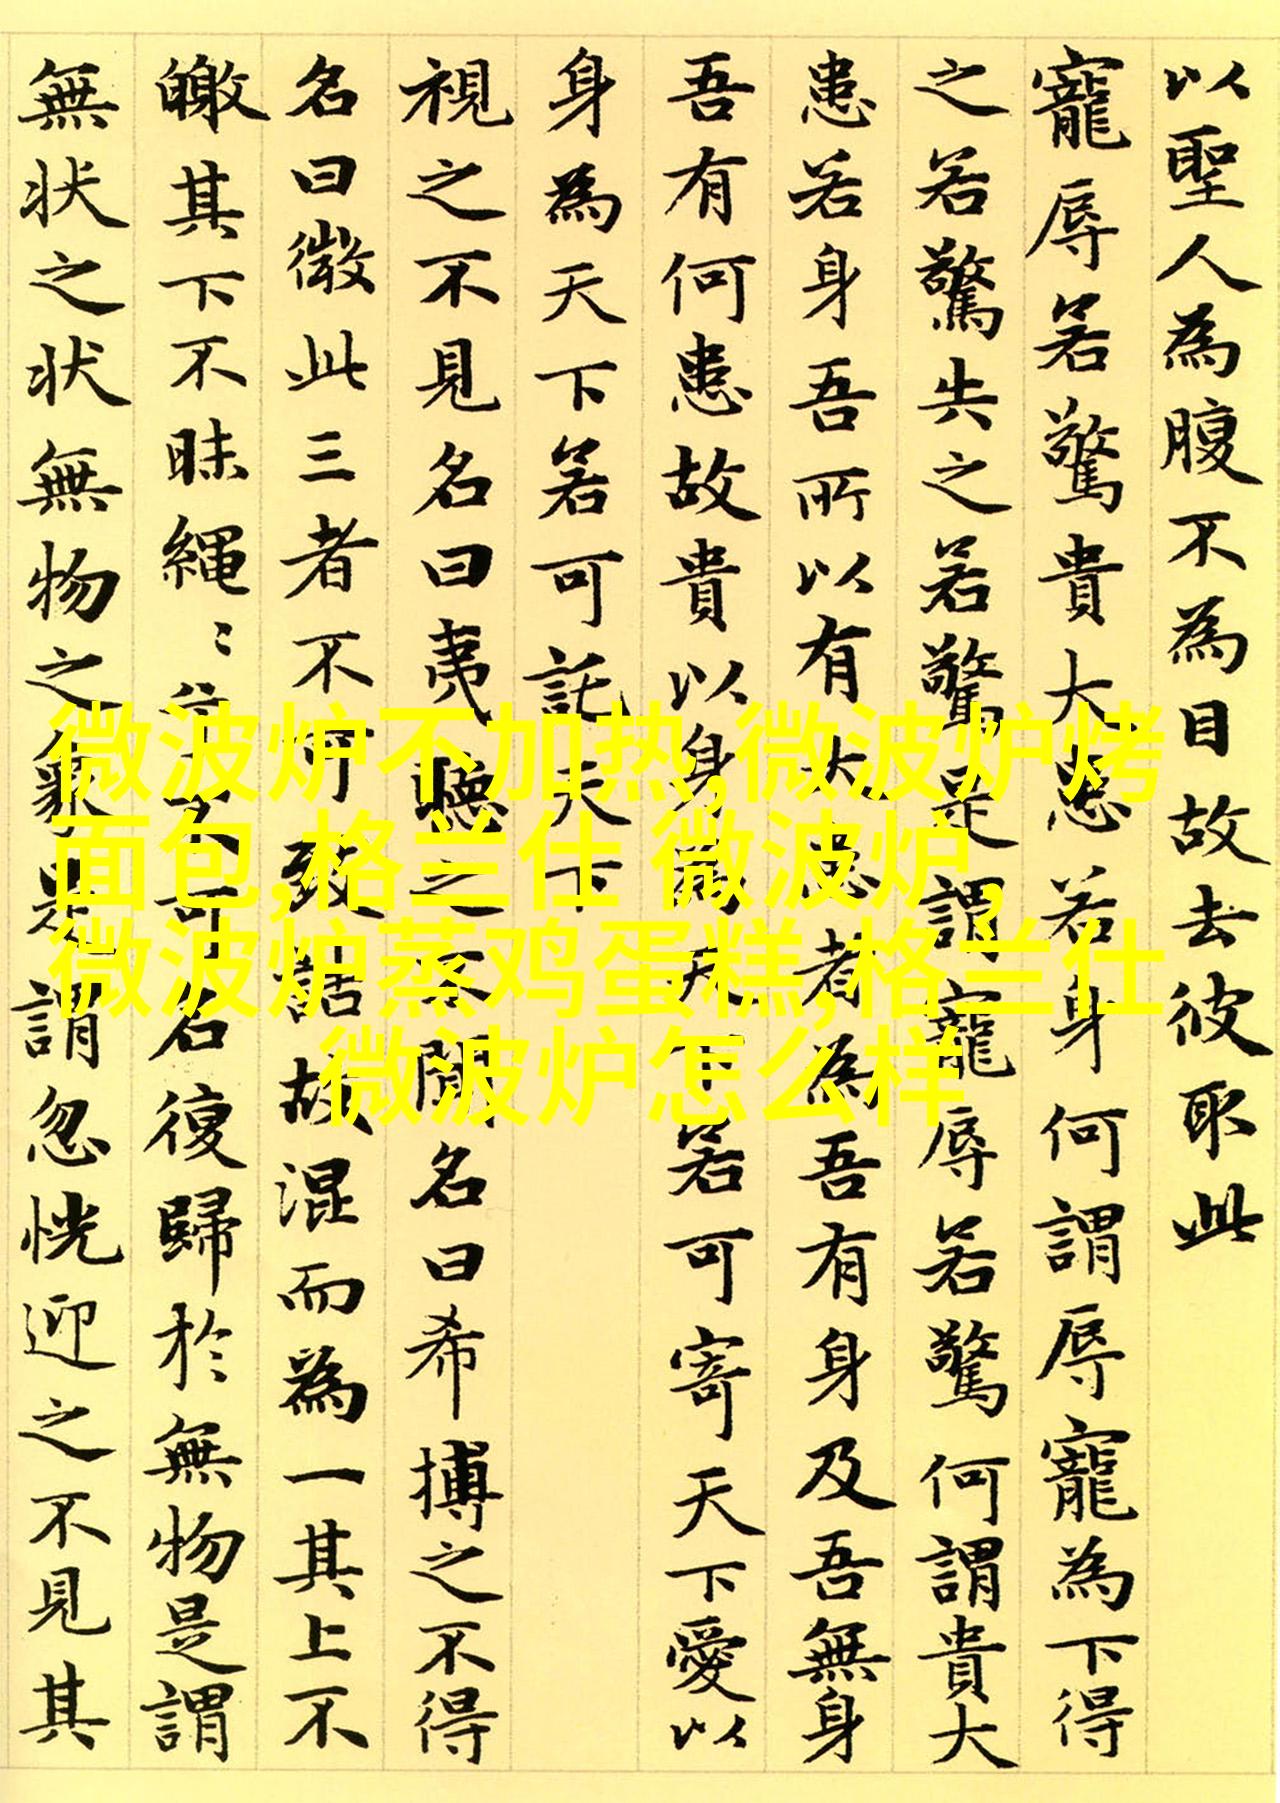 以聖人為腹不為目故去彼取此
寵辱若驚貴大患若身何謂辱寵為下得
之若驚失之若驚是謂寵辱若驚何謂貴大
患若身吾所以有大患者為吾有身及吾無身
吾有何患故貴以身為天下若可寄天下愛以
身為天下若可託天下
視之不見名曰夷聽之不聞名曰希搏之不得
名曰微此三者不可致詰故混而為一其上不
皦其下不昧繩〻兮不可名復歸於無物是謂
無状之状無物之象是謂忽恍迎之不見其
微波炉不加热,微波炉烤
面包,格兰仕 微波炉,
微波炉蒸鸡蛋糕,格兰仕
微波炉怎么样